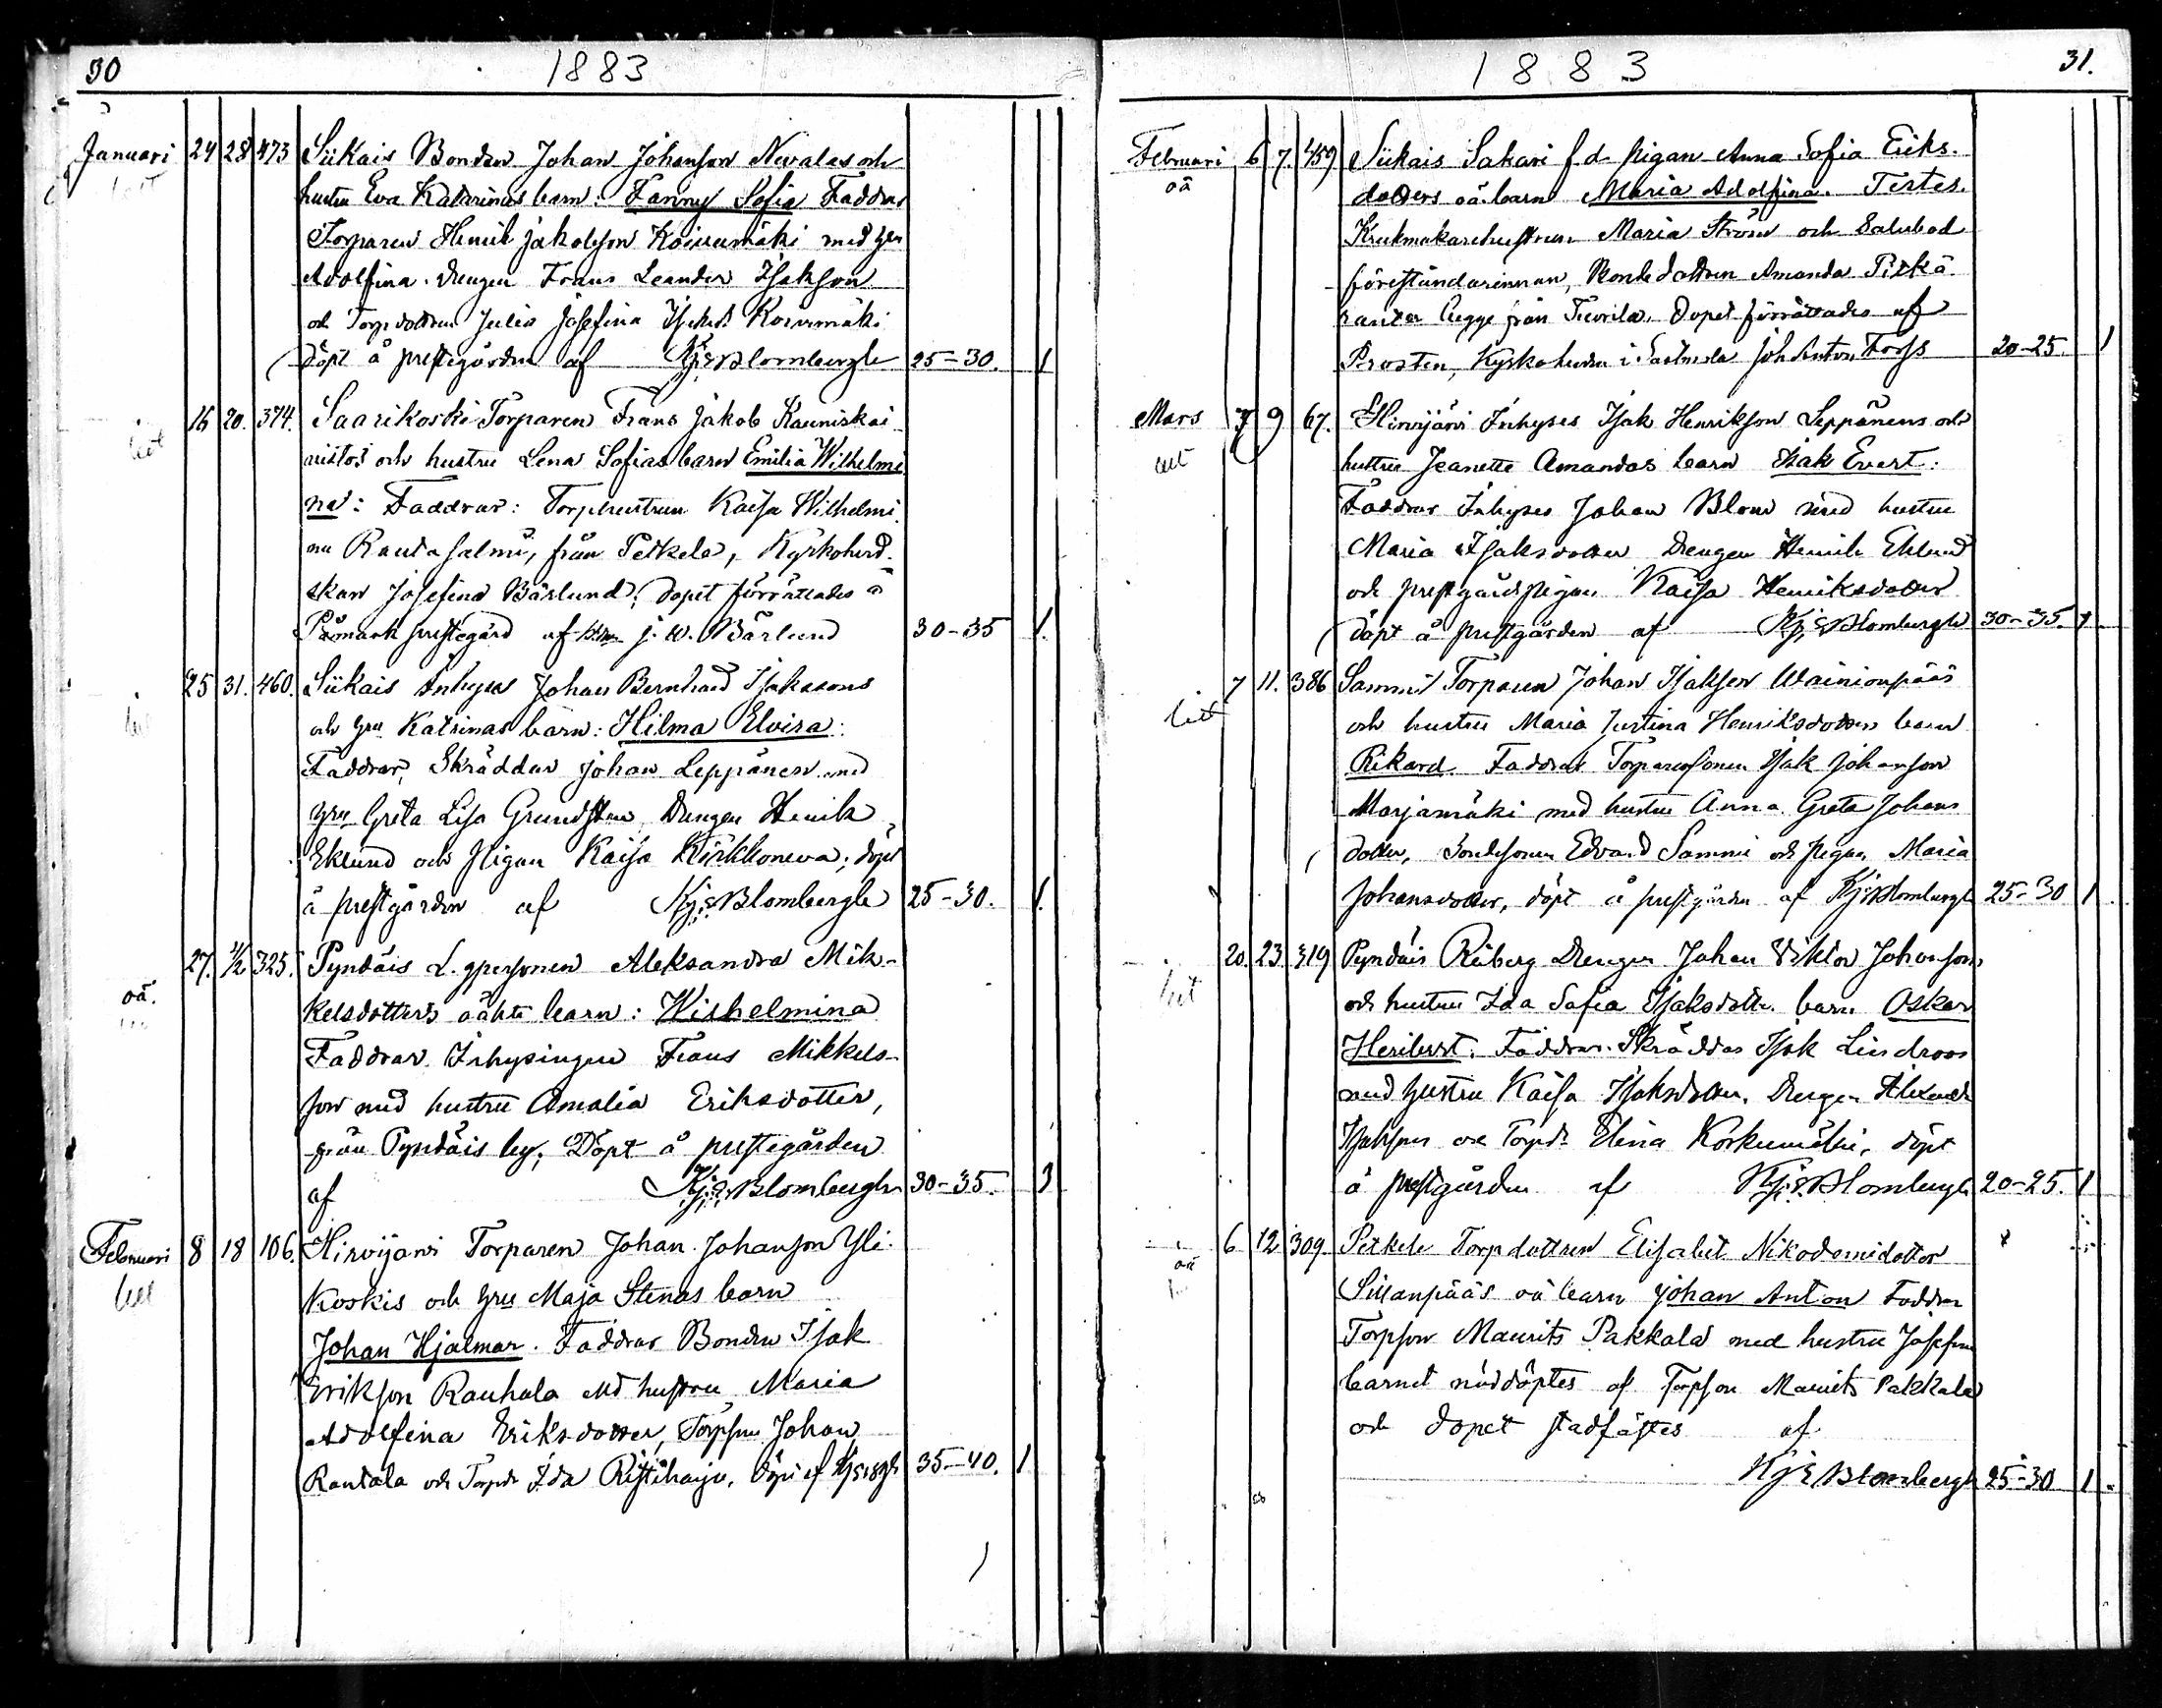 30 1883
Januari 24 28 473 Siikais Bonden Johan Johanson Nevalas och
hustru Eva Katarinas barn: Fanny Sofia Faddrar
Torparen Henrik Jakobsson Koivumäki med hru
Adolfina. Drengen Frans Leander Isakson
och Torpdottren Julia Josefina Koivumäki
döpt å prestegården af Kj: E Blombergh 25-30. 1
16 20. 374. Saarikoski Torparen Frans Jakob Kauniskai
ristos och hustru Lena Sofias barn Emilia Wilhelmi
na: Faddrar: Torphustrun Kaisa Wilhelmi
na Rautasalmi, från Petkele, Kyrkoherd-
skan Josefina Bärlund; dopet förrättades å
Påmark prestegård af J. W. Bärlund 30-35 1.
25 31. 460. Siikais Inhyses Johan Bernhard Isaksons
och hru Katrinas barn: Hilma Elvira:
Faddrar, Skräddar Johan Leppänen med
hru Greta Lisa Grundsten, Drengen Henrik
Eklund och Pigan Kaisa Kirkkoneva; döpt
å prestgården af Kj: E Blombergh 25-30. 1.
27. 11/2 325. Pyndäis L. gpersonen Aleksandra Mik-
oä.
kelsdotters oäkta barn: Wilhelmina
Faddrar Inhysingen Frans Mikkels-
son med hustru Amalia Eriksdotter,
från Pyndäis by; Döpt å prestegården
af Kj: E. Blombergh 30-35. 3
Februari 8 18 106. Hirvijärvi Torparen Johan Johanson Yli-
koskis och hru Maja Stenas barn
Johan Hjalmar. Faddrar Bonden Isak
Erikson Rauhala med hustru Maria
Adolfina Eriksdotter, Torpson Johan
Rantala och Torpdr Ida Ristiharju, döpt af 35-40. 1
1883 31.
Februari 6 7. 459 Siikais Sakari f.d. pigan Anna Sofia Eriks-
oä
dotters oä. barn Maria Adolfina. Testes.
Krukmakarehustrun Maria Ström och Salubod
föreståndarinnan, Bondedottren Amanda Pitkä
ranta begge från Tuorila. Dopet förrättades af
Prosten, Kyrkoherden i Sastmola Joh Anton Forss 20-25. 1
Mars 7 9 67. Hirvijärvi Inhyses Isak Henrikson Leppänens och
hustru Jeanette Amandas barn Isak Evert:
Faddrar Inhyses Johan Blom med hustru
Maria Isaksdotter Drengen Henrik Eklund
och prestgårdspigan Kaisa Henriksdotter
döpt å prestgården af Kj: E Blombergh 30-35. 1.
7 11. 386 Sammi Torparen Johan Isakson Wainionpääs
och hustru Maria Justina Henriksdotters barn
Rikard. Faddrar Torparesonen Isak Johanson
Marjamäki med hustru Anna Greta Johans
dotter, Bondesonen Edvard Sammi och pigan Maria
Johansdotter, döpt å prestgården af Kj: E Blombergh 25-30 1
20. 23. 319 Pyndäis Riiberg Drengen Johan Viktor Johansons
och hustru Ida Sofia Isaksdotters barn Oskar
Heribert. Faddrar. Skräddar Isak Lindroos
med hustru Kaisa Isaksdotter. Drengen Alexander
Isakson och Torpdr Elina Korkumäki, döpt
å prestgården af Kj: E. Blombergh 20-25. 1
6 12 309. Petkele Torpdottren Elisabet Nikodemidotter
oä
Sillanpääs oä barn Johan Anton Faddrar
Torpson Maurits Pakkala med hustru Josefina
barnet nöddöptes af Torpson Maurits Pakkala
och dopet stadfästes af
Kj E Blombergh 25-30 1.